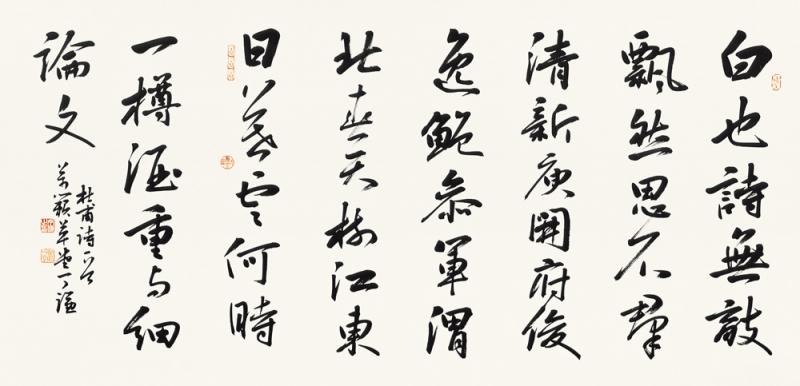 白也詩無敵
飄然思不群
清新庾開府俊
逸鮑參軍渭
北春天樹江東
日暮雲何時
一樽酒重与細
論文
杜甫詩一首
草堂丁謙